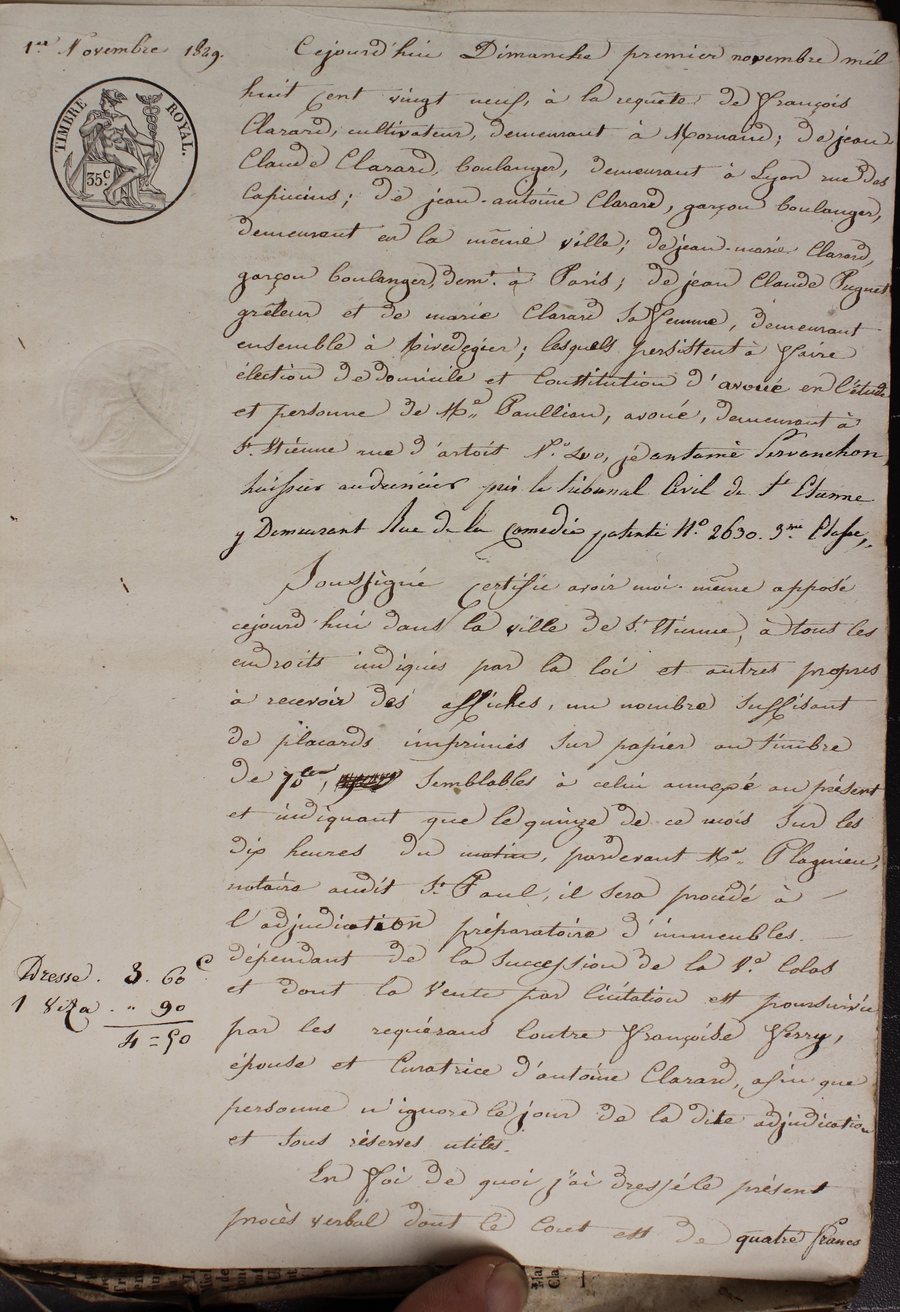 1er Novembre 1829.
TIMBRE ROYAL.
35 c
Cejourd'hui Dimanche premier novembre mil
huit Cent vingt neuf, à la requête de françois
Clarard, cultivateur, demeurant à Mornand; de jean
Claude Clarard, boulanger, demeurant à Lyon rue des
Capucins; de jean-antoine Clarard, garçon boulanger,
demeurant en la même ville; de jean-marie Clarard,
garçon boulanger, demt. à Paris; de jean Claude Puynet
grêleur et de marie Clarard Sa femme, demeurant
ensemble à Rivedegier; lesquels persistent à faire
élection de domicile et Constitution d'avoué en l'étude
et personne de Me. Paullian, avoué, demeurant à
St. Etienne rue d'artois N.o 20, je antome Pervanchon,
huissier audiencier près le Tribunal Civil de St Etienne
y Demeurant Rue de la Comedie patenté No. 2630. 3me Classe,
Soussigné Certifie avoir moi-même apposé
cejourd'hui dans la ville de St. Etienne, à tous les
endroits indiqués par la loi et autres propres
à recevoir des affiches, un nombre suffisant
de placards imprimés sur papier au timbre
de 70 cmes, semblables à celui annexé au présent
et indiquant que le quinze de ce mois sur les
dix heures du matin, pardevant Me. Plagnieu,
notaire audit St. Paul, il sera procédé à
l'adjudication préparatoire d'immeubles
dépendant de la succession de la Ve. Colas
et dont la Vente par licitation est poursuivie
par les requérans Contre françoise Verry,
épouse et Curatrice d'antoine Clarard, afin que
personne n'ignore le jour de la dite adjudication
et sous réserves utiles.
En foi de quoi j'ai dressé le présent
procès verbal dont le Cout est de quatre francs
Dresse. 3. 60 c
1 Viza .. " 90
4 = 50